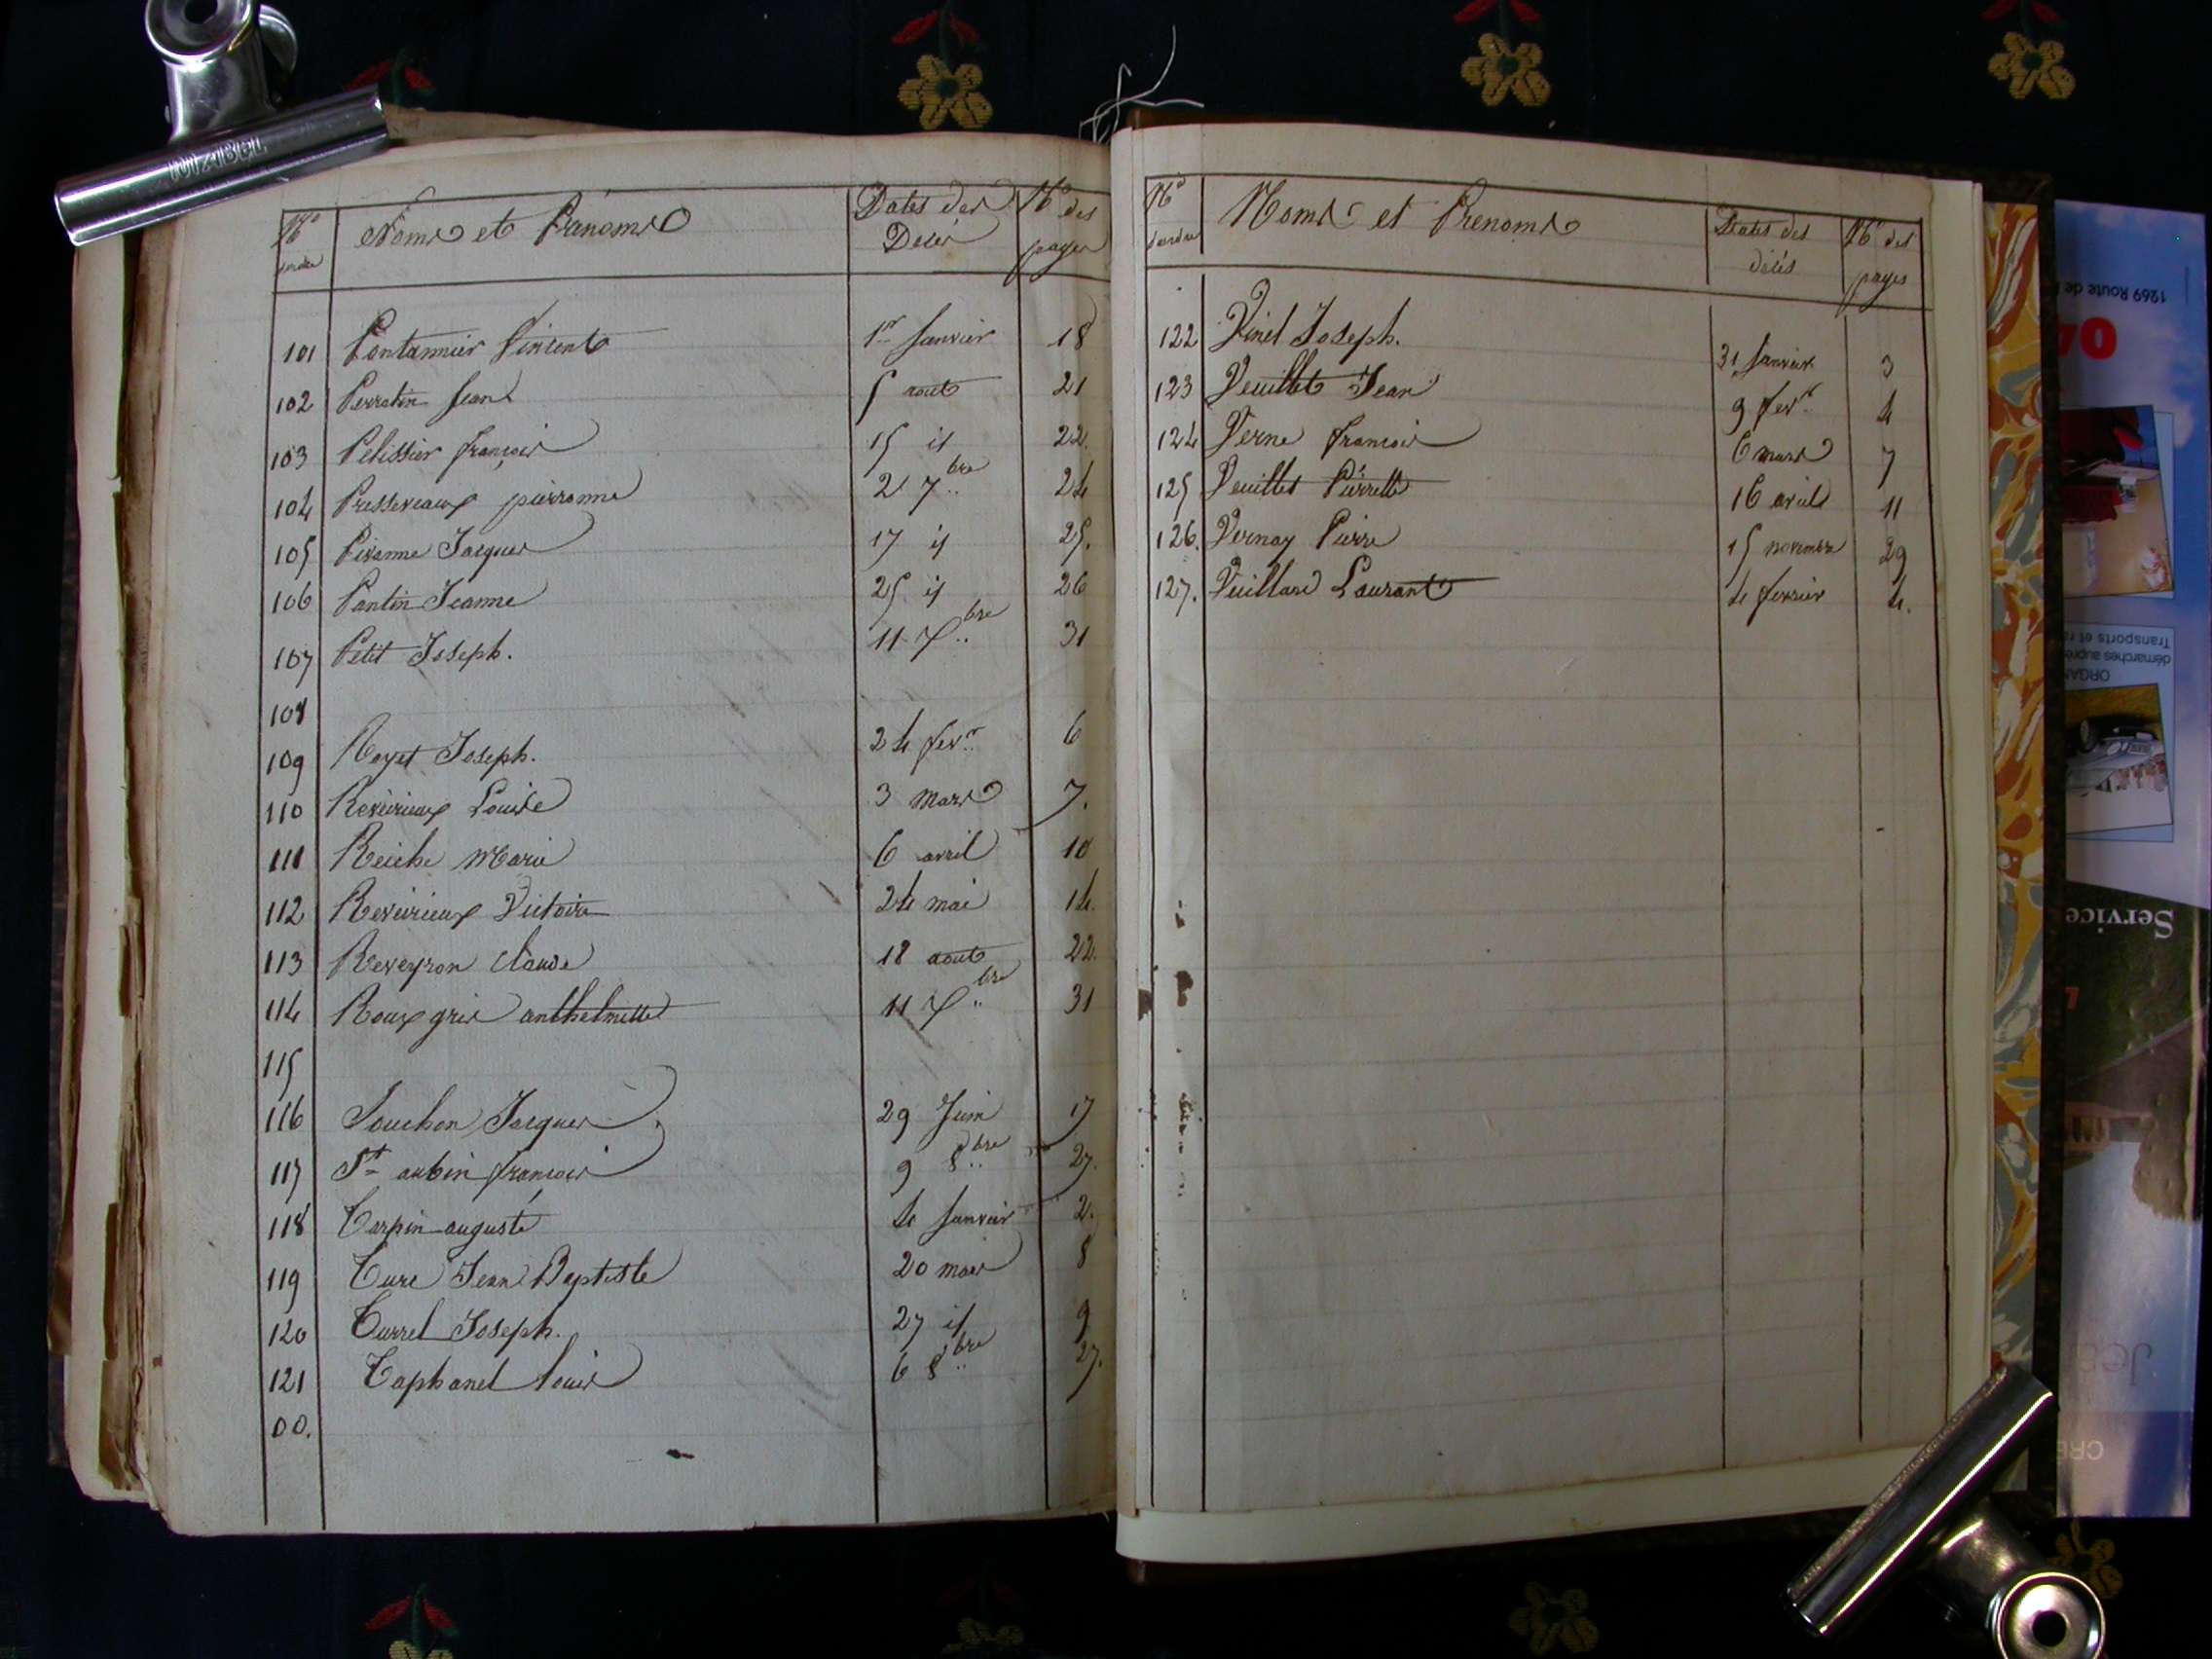 Nº d'ordre Noms et Prénoms Dates des Décès Nº des pages
101 Pontannier Vincent 1er Janvier 18
102 Perratin Jean 5 aout 21
103 Pelissier françois 15 id 22.
104 Presseveaux pierronne 2 7.bre 24
105 Pivanne Jacques 17 id 25.
106 Pantin Jeanne 25 id 26
107 Petit Joseph. 11 Xbre 31
108
109 Royet Joseph. 24 fevr 6
110 Reverieux Louise 3 Mars 7.
111 Reiche Marie 6 avril 10
112 Reverieux Victoire 24 mai 14.
113 Reveyron Claude 18 aout 22.
114 Roux gris anthelmette 11 Xbre 31
115
116 Souchon Jacques 29 Juin 17
117 St aubin françois 9 8bre 27.
118 Tarpin auguste 4 Janvier 2.
119 Ture Jean Baptiste 20 mars 8
120 Turrel Joseph. 27 id 9
121 Taphanel louis 6 8bre 27.
00.
Nº d'ordre Noms et Prenoms Dates des décés Nº des pages
122 Vinel Joseph. 31 Janvier 3
123 Veuillet Jean 9 fevr 4
124 Verne francois 6 mars 7
125 Veuillet Pierrette 16 avril 11
126. Vernay Pierre 15 novembre 29
127. Vuillard Laurant 4 fevrier 4.
1269 Route de
04
ORGAN
démarches auprès
Transports et
Service
CRE